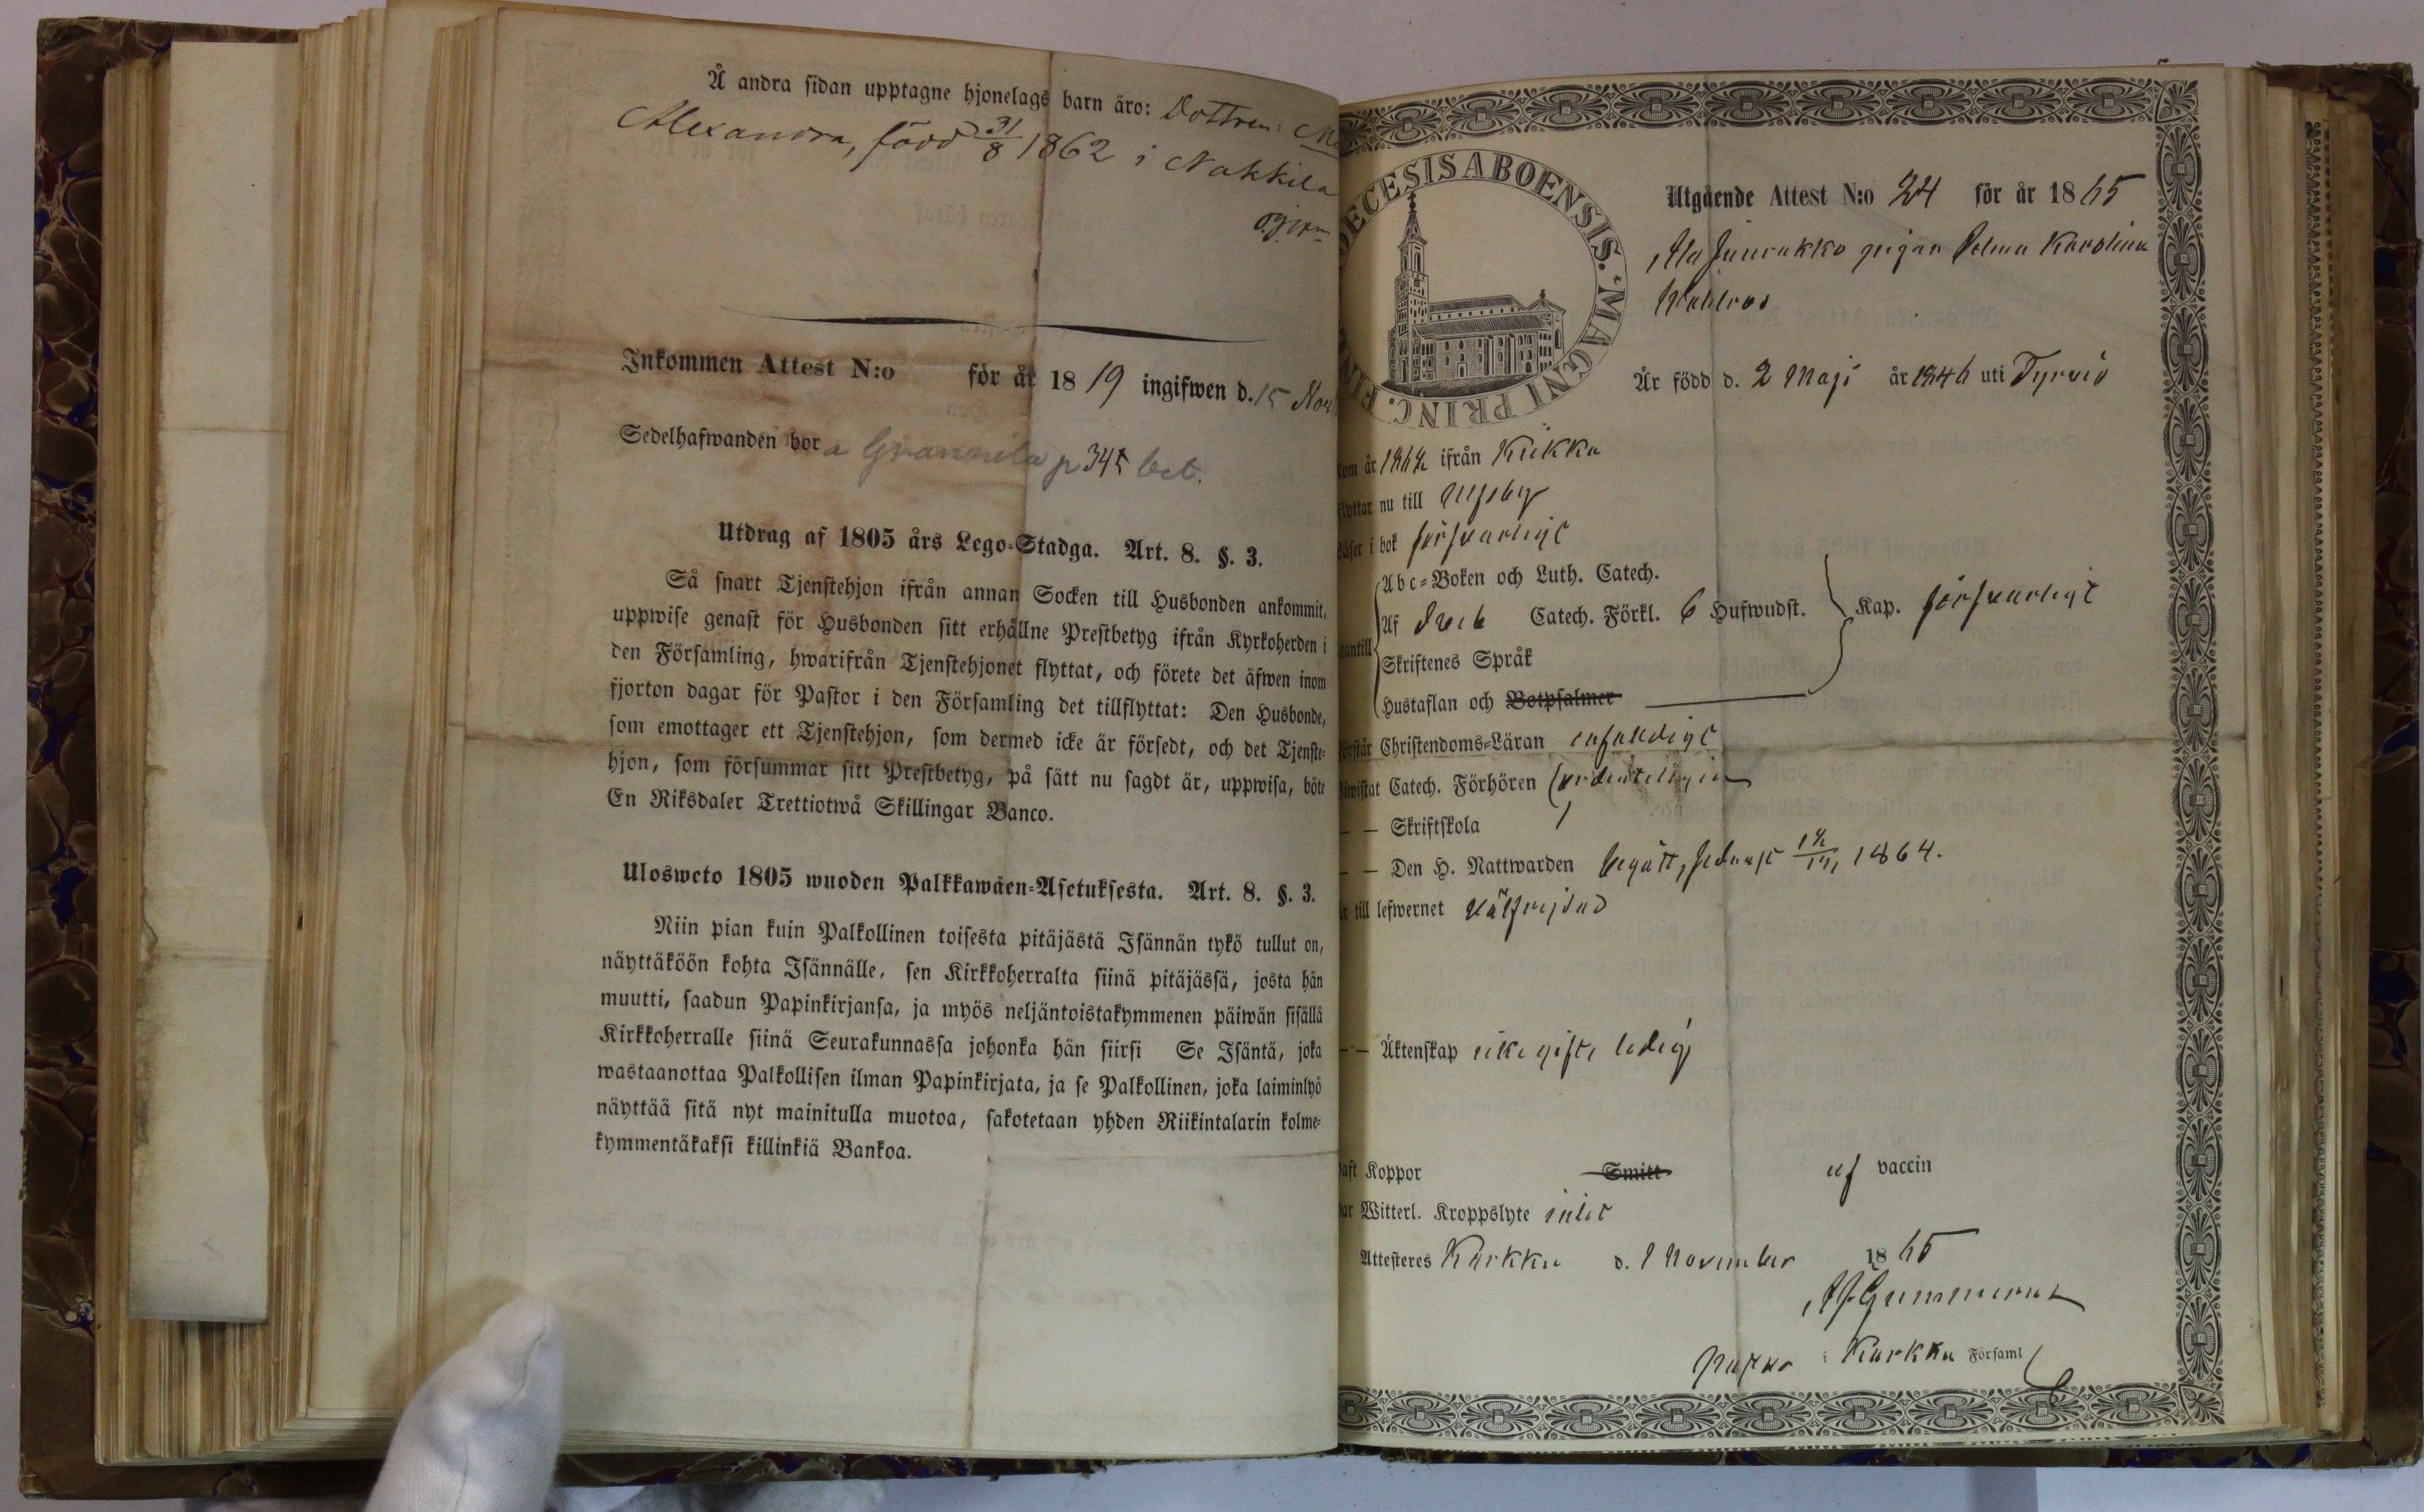 Å andra sidan upptagne hjonelags barn äro: Dottren:
Alexandra, född 31/8 1862 i Nakkila
Inkommen Attest N:o för år 18 19 ingifwen d. 15 Nov
Sedelhafwanden bor a Grannila p 345 bet.
Utdrag af 1805 års Lego-Stadga. Art. 8. §. 3.
Så snart Tjenstehjon ifrån annan Socken till Husbonden ankommit,
uppwise genast för Husbonden sitt erhållne Prestbetyg ifrån Kyrkoherden i
den Församling, hwarifrån Tjenstehjonet flyttat, och förete det äfwen inom
fjorton dagar för Pastor i den Församling det tillflyttat: Den Husbonde,
som emottager ett Tjenstehjon, som dermed icke är försedt, och det Tjenste-
hjon, som försummar sitt Prestbetyg, på sätt nu sagdt är, uppwisa, böte
En Riksdaler Trettiotwå Skillingar Banco.
Ulosweto 1805 wuoden Palkkawäen-Asetuksesta. Art. 8. §. 3.
Niin pian kuin Palkollinen toisesta pitäjästä Isännän tykö tullut on,
näyttäköön kohta Isännälle, sen Kirkkoherralta siinä pitäjässä, josta hän
muutti, saadun Papinkirjansa, ja myös neljäntoistakymmenen päiwän sisällä
Kirkkoherralle siinä Seurakunnassa johonka hän siirsi Se Isäntä, joka
wastaanottaa Palkollisen ilman Papinkirjata, ja se Palkollinen, joka laiminlyö
näyttää sitä nyt mainitulla muotoa, sakotetaan yhden Riikintalarin kolme-
kymmentäkaksi killinkiä Bankoa.
ECESIS ABOENSIS. * MAGNI PRINC. FIN
Utgående Attest N:o 24 för år 18 65
pigan Selma Karolina
Är född d. 2 Maji år 1846 uti Tyrvis
om år 1864 ifrån Kiikka
flyttar nu till Ulfsby
läser i bok försvarligt
Abc-Boken och Luth. Catech.
Af Sveb Catech. Förkl. 6 Hufwudst. Kap. försvarligt
utantill
Skriftenes Språk
Hustaflan och Botpsalmer
förstår Christendoms-Läran enfaldigt
Catech. Förhören ordenteligen
— — Skriftskola
— — Den H. Nattwarden begått, sednast 1864.
till lefwernet välfrejdad
— — Äktenskap icke gift, ledig
haft Koppor Smitt af vaccin
har Witterl. Kroppslyte intet
Attesteres Karkku d. 1 November 18 65
Gummerus
Pastor i Karkku Församl